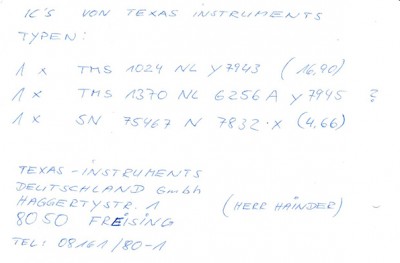 IC'S VON TEXAS INSTRUMENTS
TYPEN:
1 x TMS 1024 NL Y7943 (16,90)
1 x TMS 1370 NL 6256A Y7945 ?
1 x SN 75467 N 7832·X (4,66)
TEXAS-INSTRUMENTS
DEUTSCHLAND GmbH
HAGGERTYSTR. 1 (HERR HAINDER) -
8050 FREISING
TEL: 08161/80-1